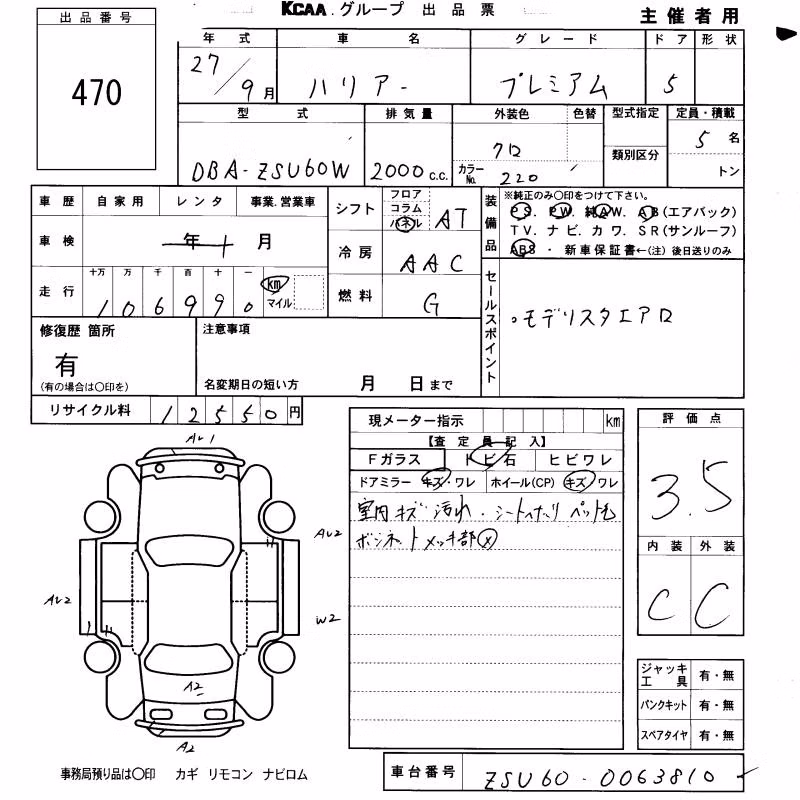 KCAA.グループ 出品票
主催者用
出品番号
470
年式 車名 グレード ドア 形状
27/9月 ハリアー プレミアム 5
型式 排気量 外装色 色替 型式指定 定員・積載
DBA-ZSU60W 2000c.c. クロ 5名
カラーNo. 220 類別区分 トン
車歴 自家用 レンタ 事業.営業車
車検 年 月
走行 十万 万 千 百 十 一
106990 km マイル
シフト フロア コラム パネル AT
冷房 AAC
燃料 G
装備品 ※純正のみ○印をつけて下さい。
PS. PW. 純AW. AB(エアバック)
TV. ナビ. カワ. SR(サンルーフ)
ABS・新車保証書←(注)後日送りのみ
セールスポイント
○モデリスタエアロ
修復歴 箇所
有
(有の場合は○印を)
注意事項
名変期日の短い方 月 日まで
リサイクル料 12550円
現メーター指示 km
【査定員記入】
Fガラス トビ石 ヒビワレ
ドアミラー キズ・ワレ ホイール(CP) キズ/ワレ
室内キズ 汚れ.シート ペット毛
ボンネットメッキ部Ⓧ
評価点
3.5
内装 外装
C C
AU1
AU2
AU2
W2
A2
A2
ジャッキ工具 有・無
パンクキット 有・無
スペアタイヤ 有・無
事務局預り品は○印 カギ リモコン ナビロム
車台番号 ZSU60-0063810